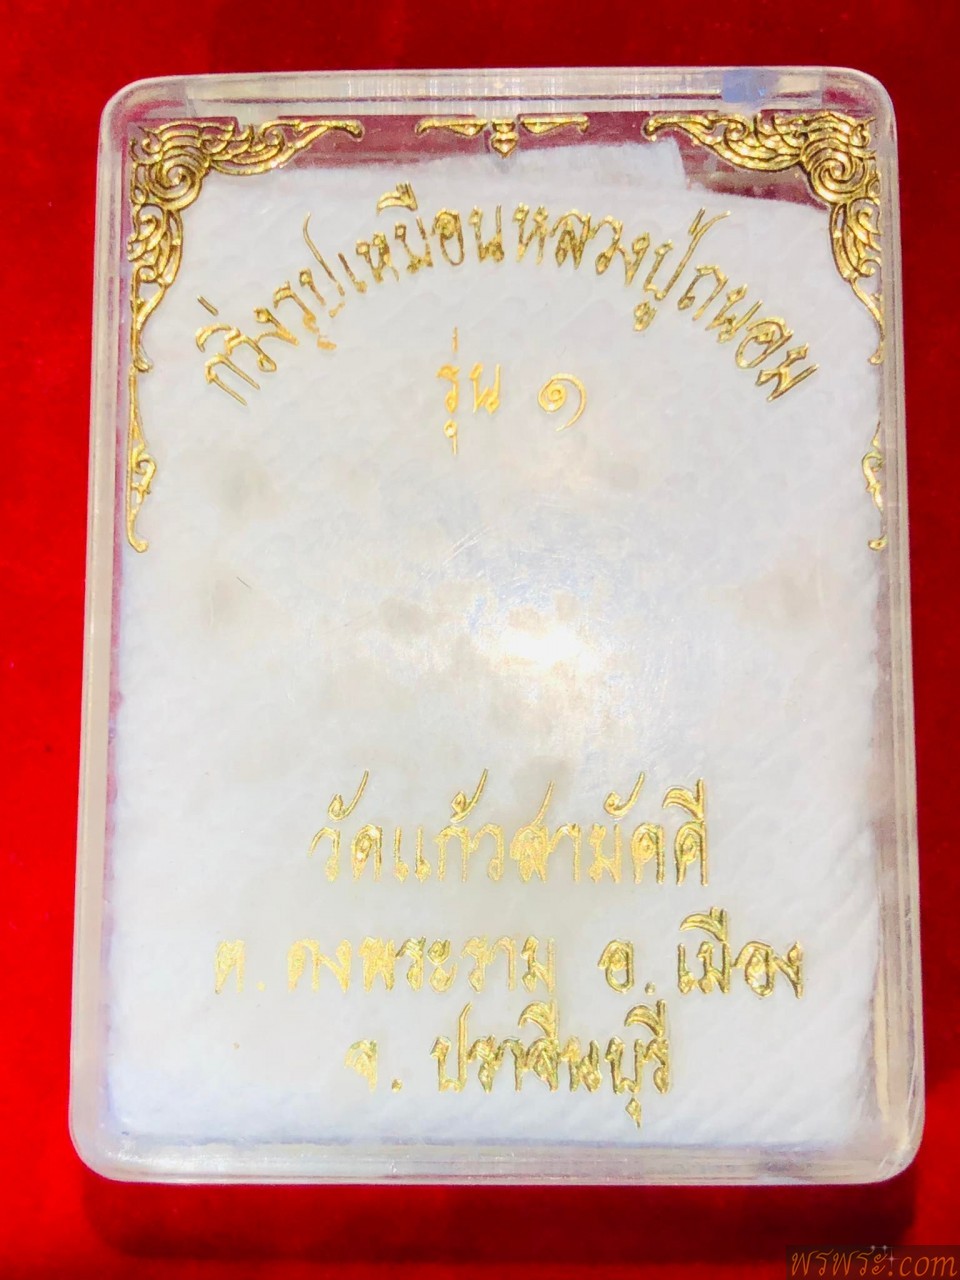 กริ่งรูปเหมือนหลวงปู่ถนอม
รุ่น ๑
วัดแก้วสามัคคี
ต. ดงพระราม อ. เมือง
จ. ปราจีนบุรี
พรพระ.com